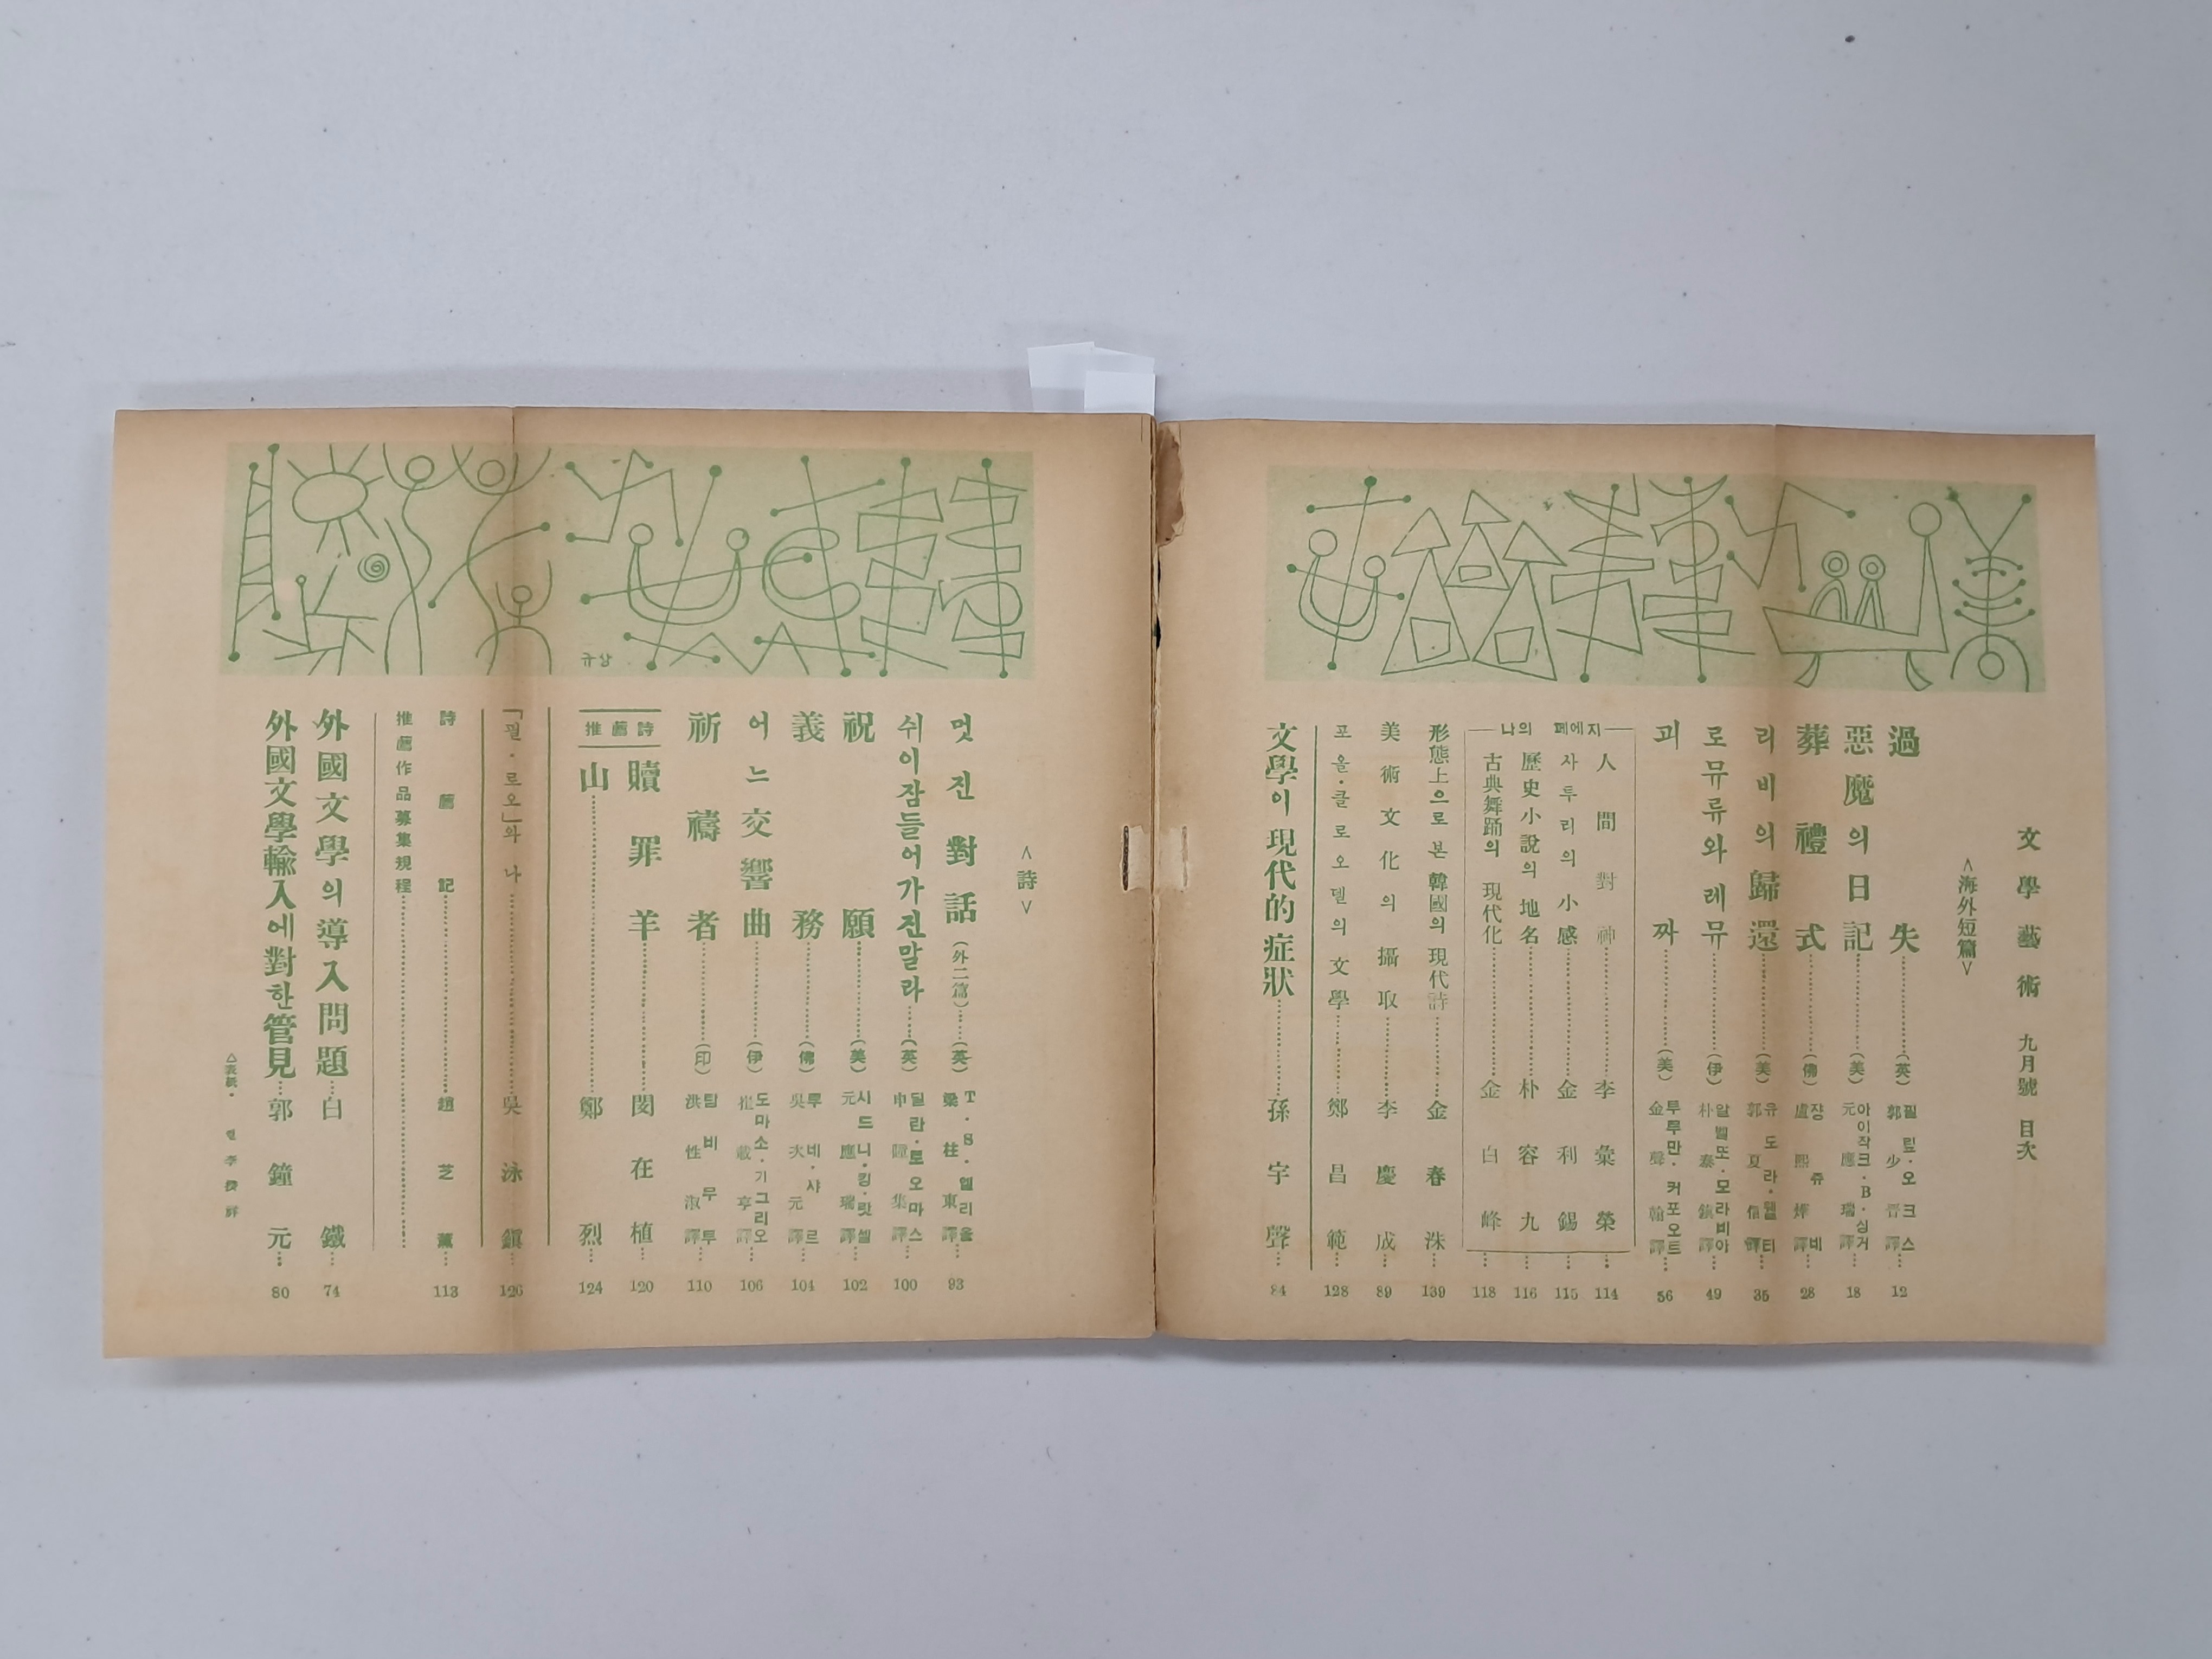 文學藝術 九月號 目次
<海外短篇>
過失……(英) 필립·오크스 郭少晋 譯…12
惡魔의 日記……(美) 아이작크·B·싱거 元應瑞 譯…18
葬禮式……(佛) 쟝쥬비 盧熙燁 譯…28
리비의 歸還……(美) 유도라·웰티 郭夏信 譯…35
로뮤류와 레뮤……(伊) 알벨또·모라비아 朴泰鎭 譯…49
괴짜……(美) 투루만·커포오트 金聲翰 譯…56
나의 페에지
人間對神……李彙榮…114
사투리의 小感……金利錫…115
歷史小說의 地名……朴容九…116
古典舞踊의 現代化……金白峰…118
形態上으로 본 韓國의 現代詩……金春洙…139
美術文化의 攝取……李慶成…89
포올·클로오델의 文學……鄭昌範…128
文學이 現代的症狀……孫宇聲…84
<詩>
멋진 對話(外二篇)……(英) T·S·엘리옽 梁柱東 譯…93
쉬이 잠들어 가진 말라……(英) 딜란·토오마스 申瞳集 譯…100
祝願……(美) 시드니·킹·랏셀 元應瑞 譯…102
義務……(佛) 루네·샤르 吳次元 譯…104
어느 交響曲……(伊) 도마소·기그리오 崔載亨 譯…106
祈禱者……(印) 탑비무투 洪性淑 譯…110
推薦詩
贖罪羊……閔在植…120
山……鄭烈…124
「필·로오」와 나……吳泳鎭…126
詩薦記……趙芝薰…113
推薦作品募集規程……
外國文學의 導入問題…白鐵…74
外國文學輸入에 對한 管見…郭鐘元…80
△表紙·
규상